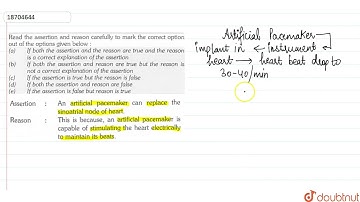 18704644
Read the assertion and reason carefully to mark the correct option out of the options given below :
(a) If both the assertion and the reason are true and the reason is a correct explanation of the assertion
(b) If both the assertion and reason are true but the reason is not a correct explanation of the assertion
(c) If the assertion is true but the reason is false
(d) If both the assertion and reason are false
(e) If the assertion is false but reason is true
Assertion : An artificial pacemaker can replace the
sinoatrial node of heart.
Reason : This is because, an artificial pacemaker is
capable of stimulating the heart electrically
to maintain its beats.
Artificial Pacemaker
implant in ← instrument
heart → heart beat drop to
30-40/min
doubtnut